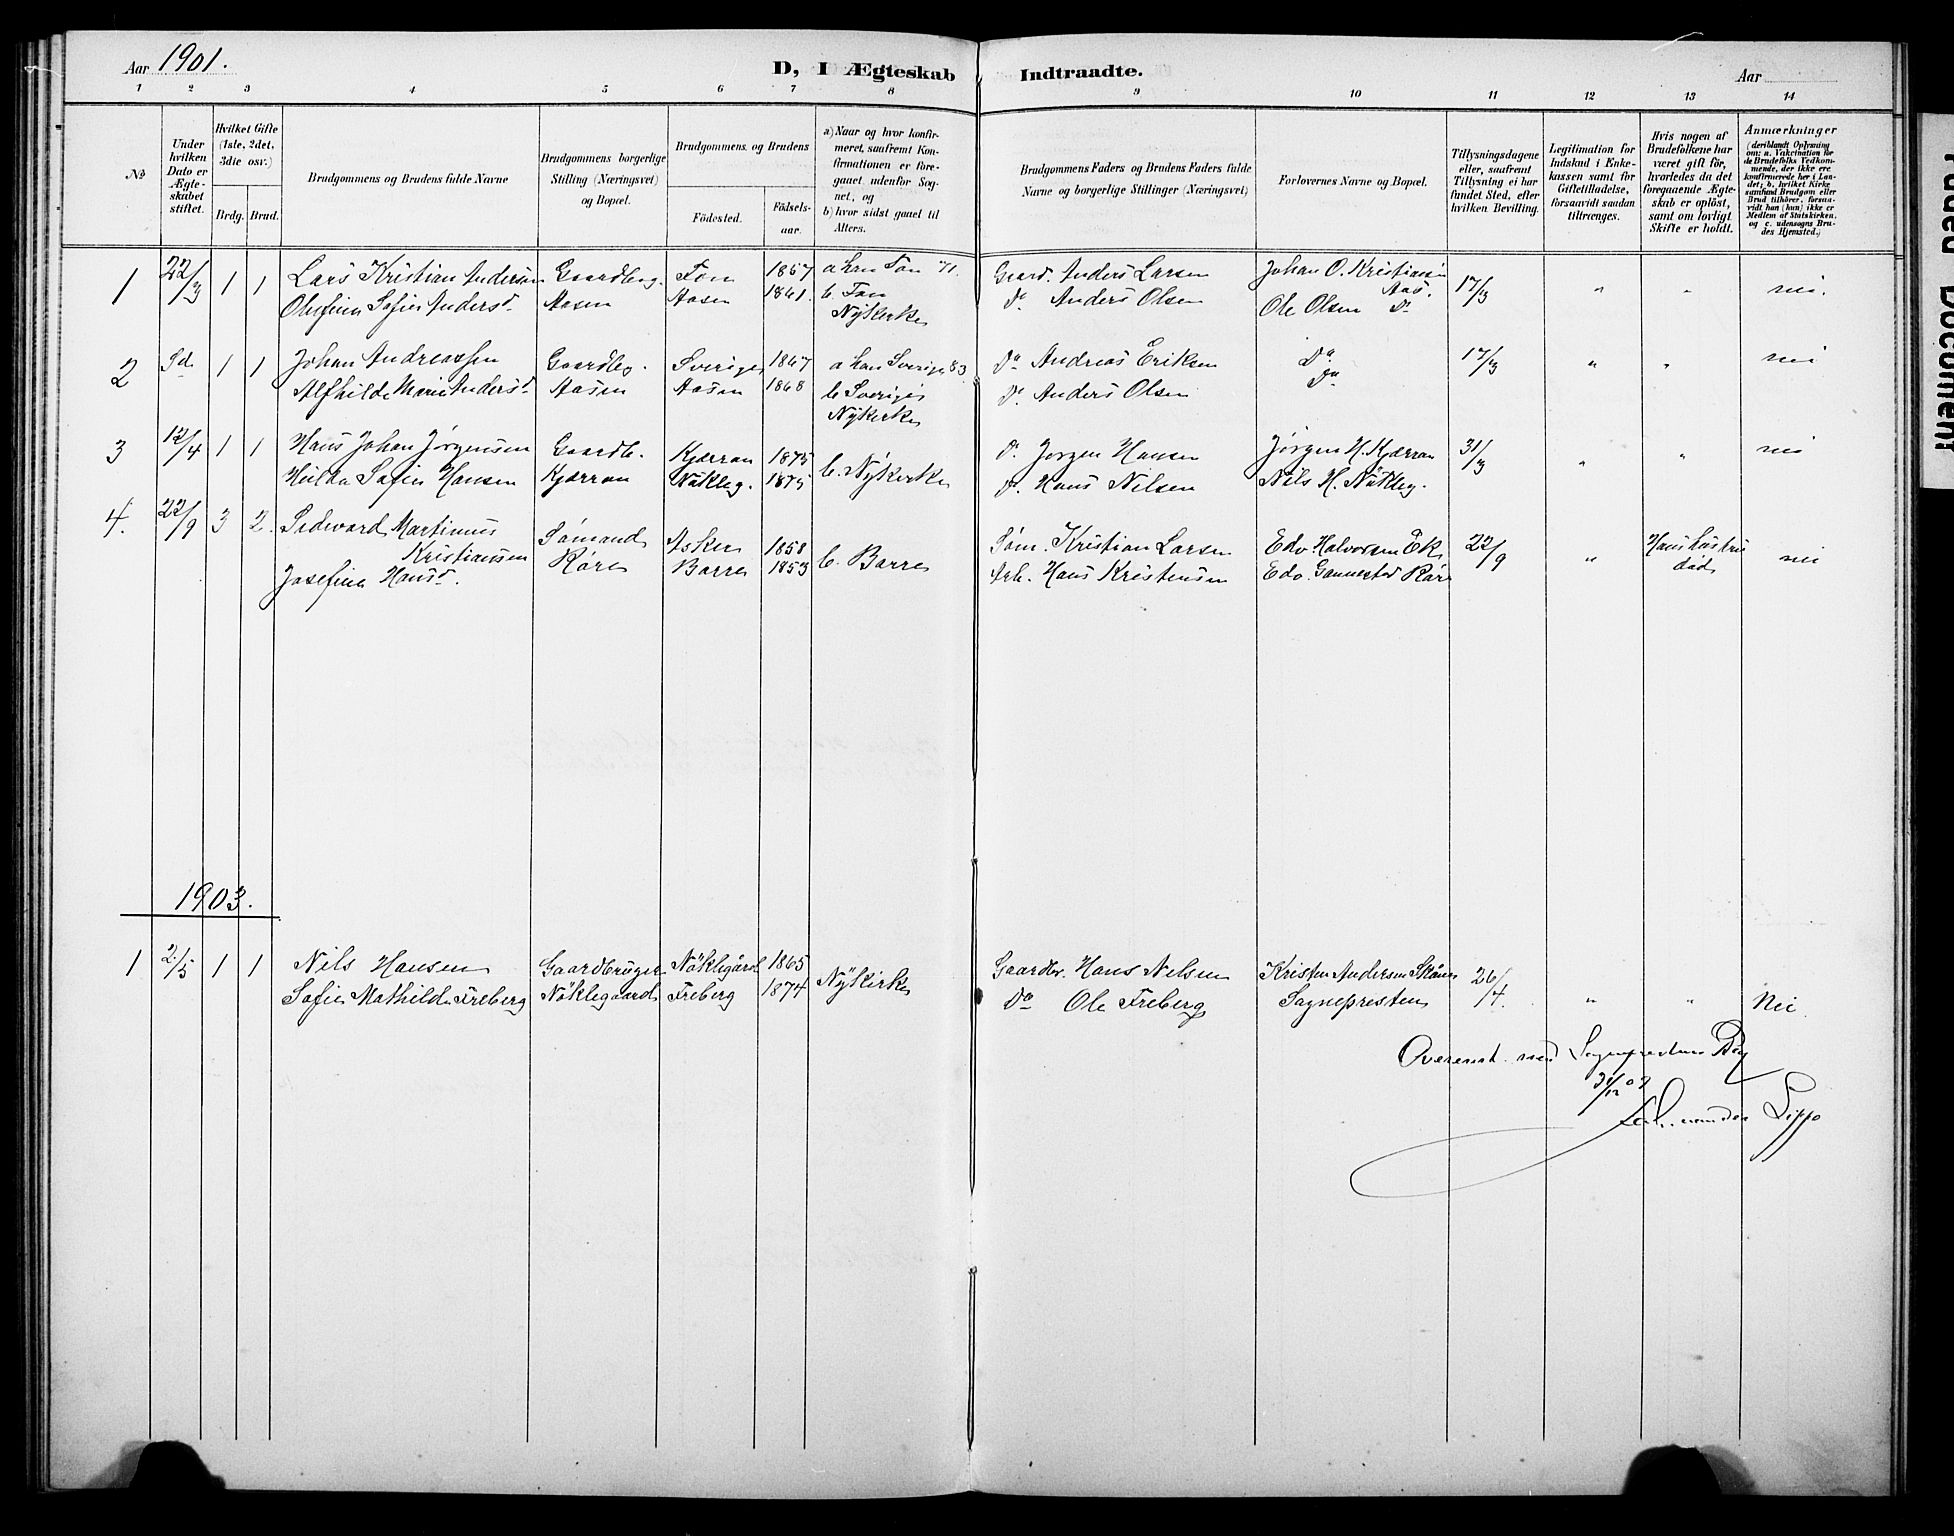 Aar 1901.
D, I Ægteskab Indtraadte.
Aar
1 2 3 4 5 6 7 8 9 10 11 12 13 14
No
Under hvilken Dato er Ægteskabet stiftet.
Hvilket Gifte (1ste, 2det, 3die osv.)
Brdg. Brud.
Brudgommens og Brudens fulde Navne
Brudgommens borgerlige Stilling (Næringsvei) og Bopæl.
Brudgommens og Brudens
Födested. Födselsaar.
a) Naar og hvor konfirmeret, saafremt Konfirmationen er foregaaet udenfor Sognet, og
b) hvor sidst gaaet til Alters.
Brudgommens Faders og Brudens Faders fulde Navne og borgerlige Stillinger (Næringsvei)
Forlovernes Navne og Bopæl.
Tillysningsdagene eller, saafremt Tillysning ei har fundet Sted, efter hvilken Bevilling.
Legitimation for Indskud i Enkekassen samt for Giftetilladelse, forsaavidt saadan tiltrænges.
Hvis nogen af Brudefolkene har været gift för, hvorledes da det foregaaende Ægteskab er oplöst, samt om lovligt Skifte er holdt.
Anmærkninger (deriblandt Oplysning om: a. Vakcination for de Brudefolks Vedkommende, der ikke ere konfirmerede her i Landet; b. hvilket Kirke samfund Brudgom eller Brud tilhörer, forsaavidt han (hun) ikke er Medlem af Statskirken, og c. udensogns Brudes Hjemsted.)
1 22/3 1 1 Lars Kristian Andersen Gaardbrg. Fon 1857 a han Fon 71. Gaard. Anders Larsen Johan O. Kristiansen Aas. 17/3 " " nei.
Olufine Sofie Andersd Aasen Aasen 1861. b. Fon Nÿkirke do Anders Olsen Ole Olsen do
2 Sd. 1 1 Johan Andreassen Gaardbrg. Sverige 1867 a han Sverige 83 Do Andreas Eriksen Do 17/3 " " nei
Alfhilde Marie Andersd Aasen Aasen 1868 b Sverige Nÿkirke do. Anders Olsen Do
3 12/4 1 1 Hans Johan Jørgensen Gaardb. Kjærran 1875 b. Nÿkirke do. Jørgen Hansen Jørgen H. Kjærran 31/3 " " nei
Hilda Sofie Hansen Kjærran Nökleg. 1875 do. Hans Nilsen Nils H. Nökleg.
4. 22/9 3 2. Sedvard Martinius Kristiansen Sømand Asker 1858 b. Borre Søm. Kristian Larsen Edv. Halvorsen Ek 22/9 " Hans hustru död nei
Josefine Hansd. Röre Borre 1853 Arb. Hans Kristensen Edv. Gannestad Rör
1903.
1 2/5 1 1 Nils Hansen Gaardbruger Nöklegård 1865 Nÿkirke Gaardbr. Hans Nilsen Kristen Andersen Skåne 26/4. " " Nei
Sofie Mathilde Freberg Nöklegaard Freberg 1874 Do Ole Freberg Sognepresten
Overenst. med Sognprestens Bog
31/12 07
Lippo